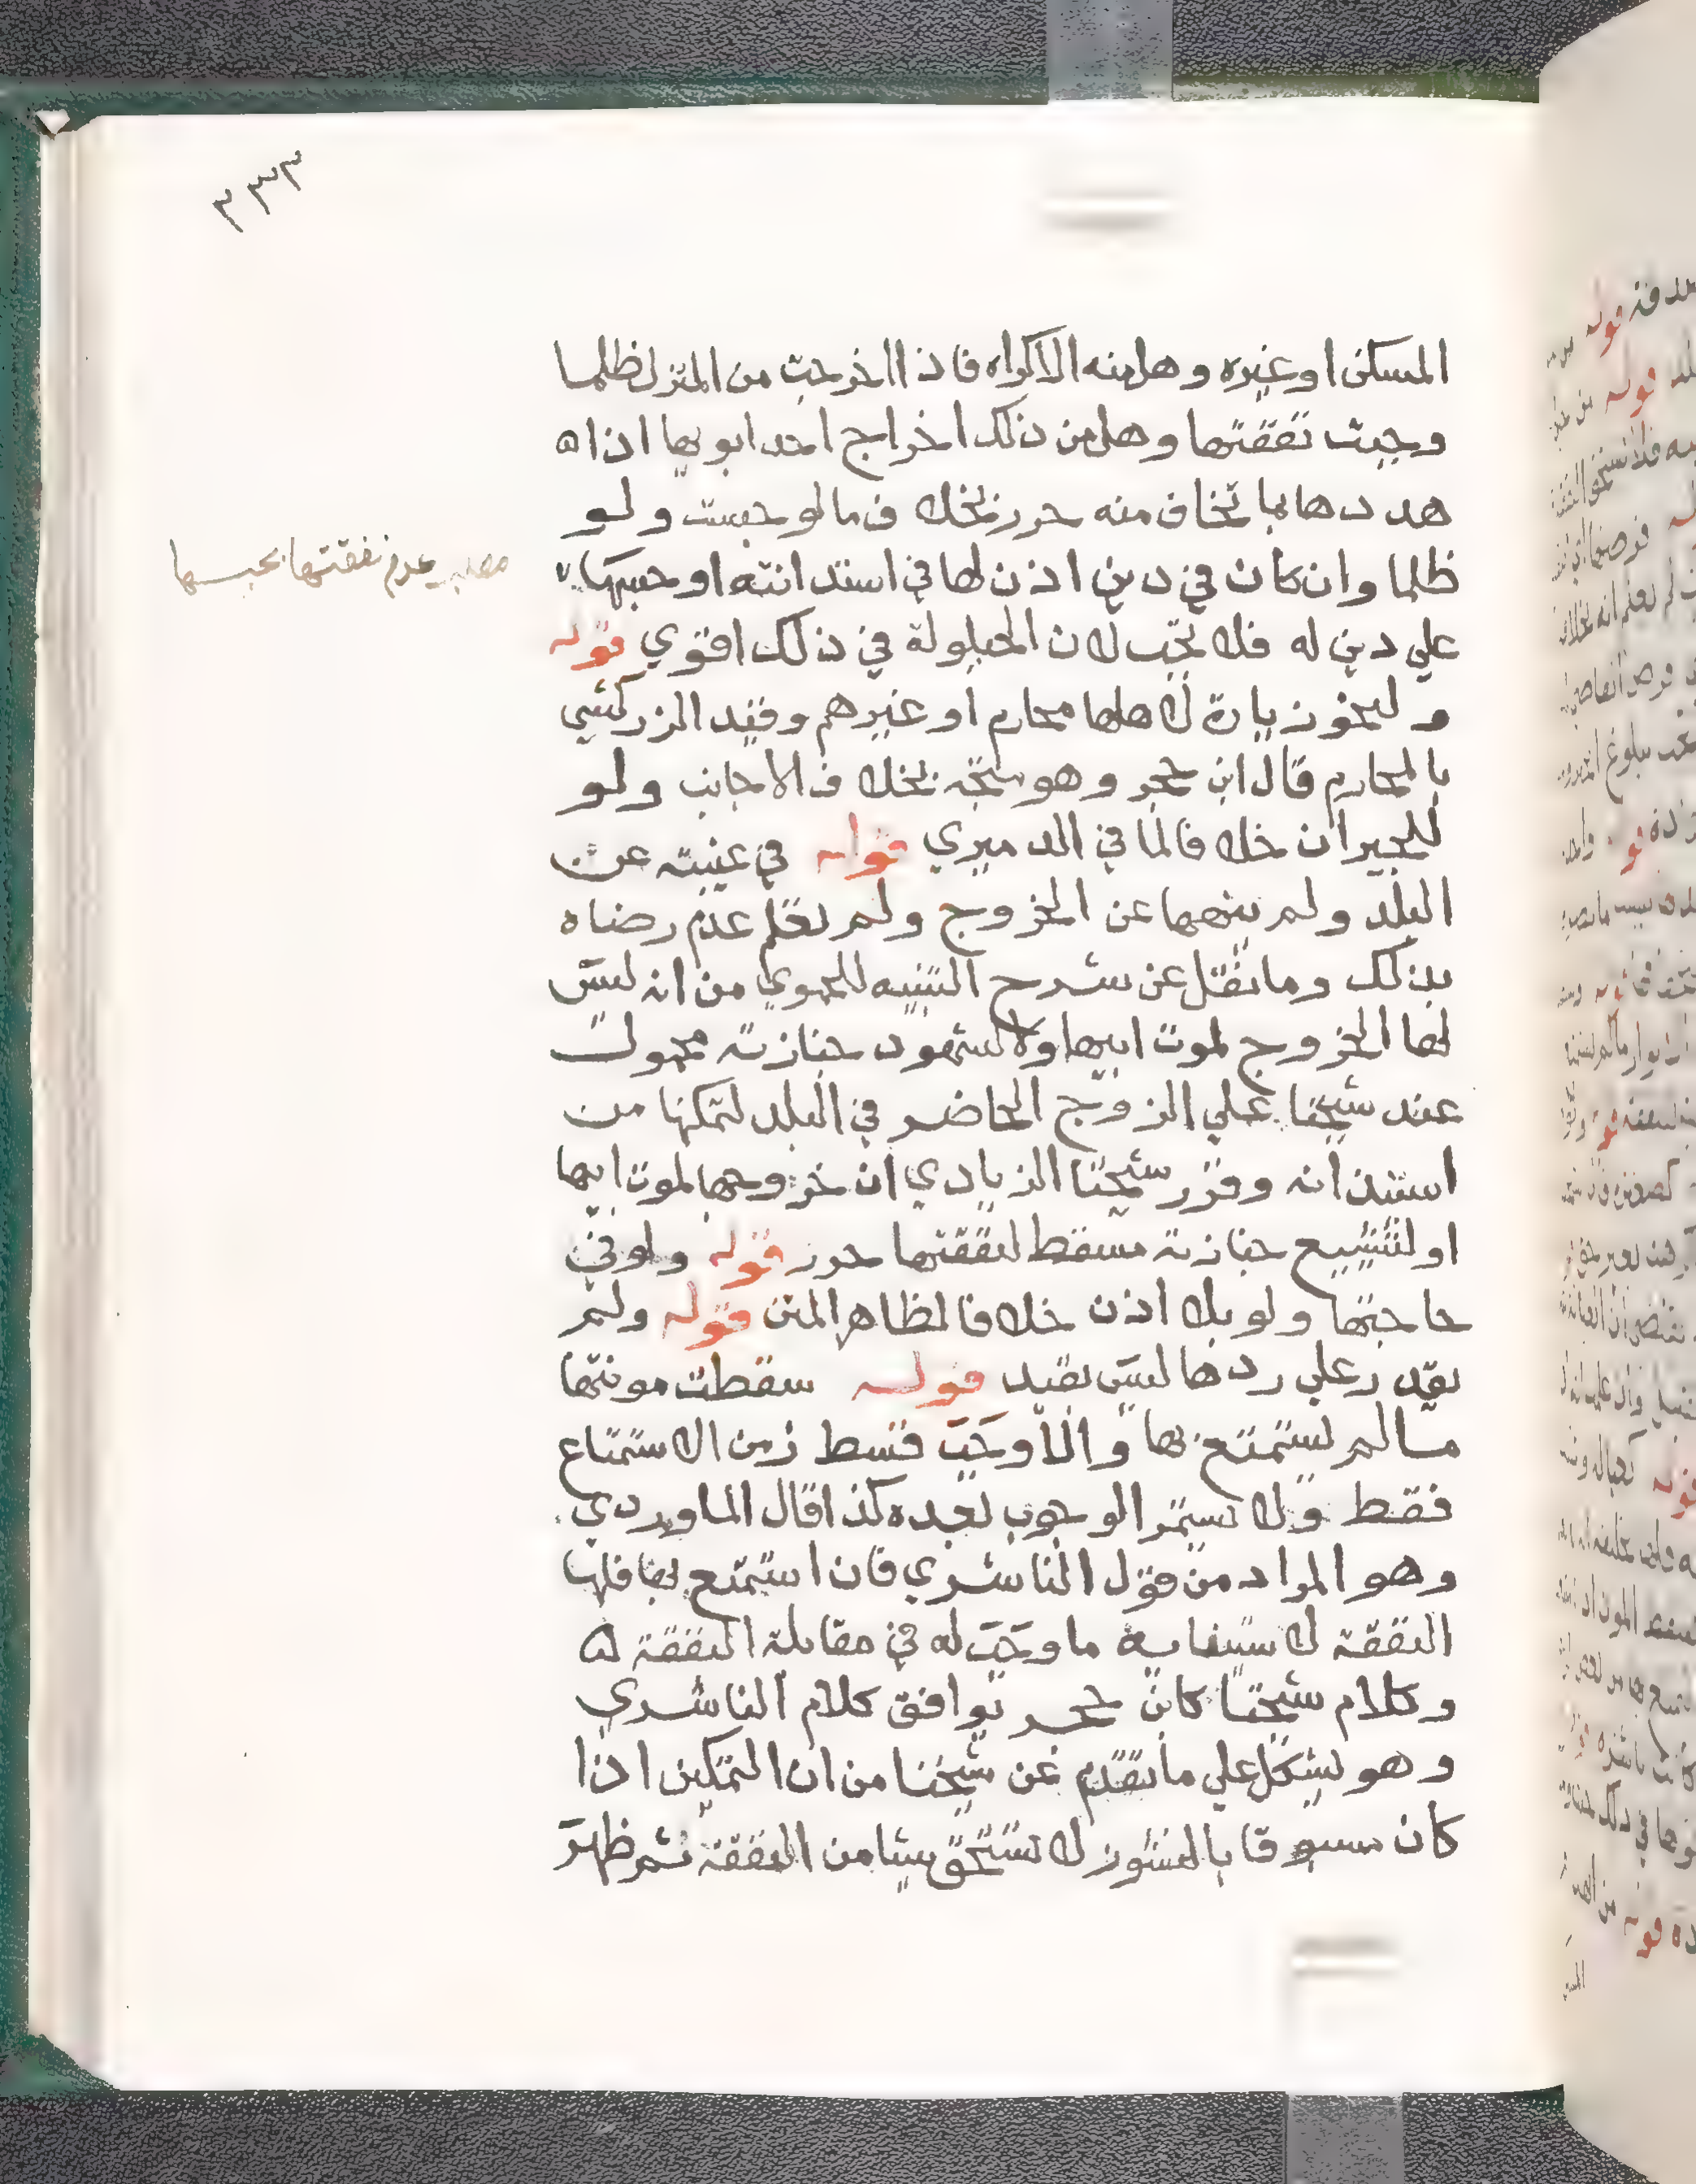 ٢٣٣
المسكن او غيره وهل منه الاكراه فاذا اخرجت من المنزل ظلما
وجبت نفقتها وهل من ذلك اخراج احد ابويها اذا ه
هددها بما تخاف منه حرر بخلاف ما لو حبست ولو
ظلما وان كان في دين اذن لها في استدانته او حبسها
مطلب عدم نفقتها بحبسها
علي دين له فلا تجب لان الحيلولة في ذلك اقوي قوله
ولنحو زيارة لاهلها محارم او غيرهم وقيد الزركشي
بالمحارم قال ابن حجر وهو متجه بخلاف الاجانب ولو
للجيران خلافا لما في الدميري قوله في غيبته عن
البلد ولم ينهها عن الخروج ولم تعلم عدم رضاه
بذلك وما نقل عن شرح التنبيه للحموي من انه ليس
لها الخروج لموت ابيها ولا لشهود جنازته محمول
عند شيخنا علي الزوج الحاضر في البلد لتمكنها من
استئذانه وقرر شيخنا الزيادي ان خروجها لموت ابيها
او لتشييع جنازته مسقط لنفقتها حرر قوله ولو في
حاجتها ولو بلا اذن خلافا لظاهر المتن قوله ولم
يقدر علي ردها ليس بقيد قوله سقطت مونتها
ما لم يستمتع بها والا وجب قسط زمن الاستمتاع
فقط ولا يستمر الوجوب بعده كذا قال الماوردي
وهو المراد من قول الناشري فان استمتع بها فلها
النفقة لاستيفايه ما وجب له في مقابلة النفقة له
وكلام شيخنا كابن حجر يوافق كلام الناشري
وهو يشكل علي ما تقدم عن شيخنا من ان التمكين اذا
كان مسبوقا بالنشوز لا تستحق شيا من النفقة ثم ظهر